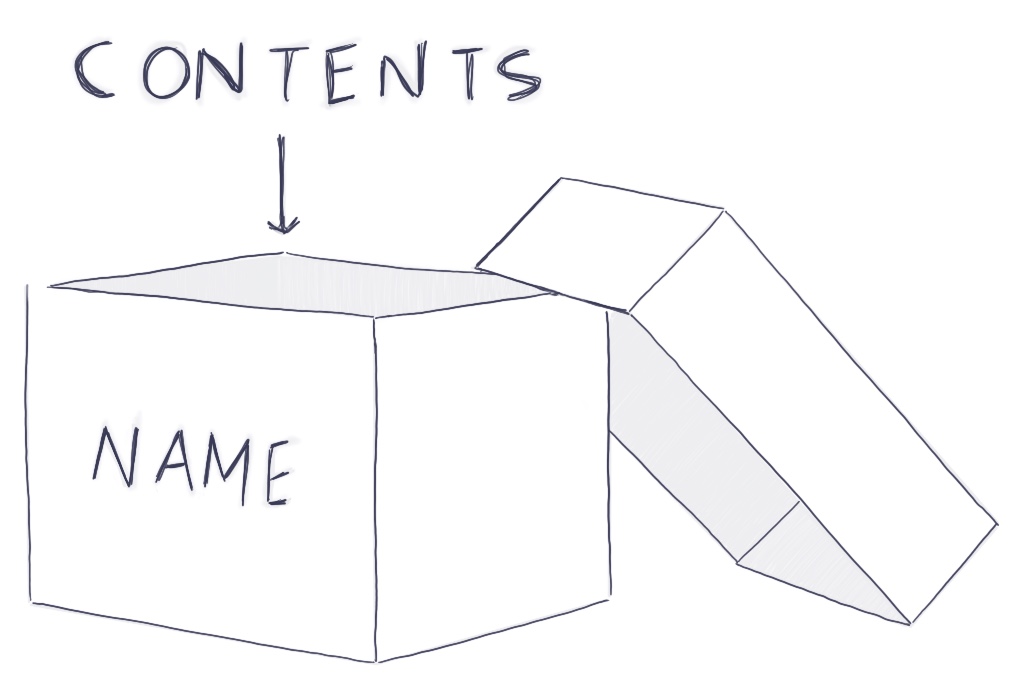 CONTENTS
NAME